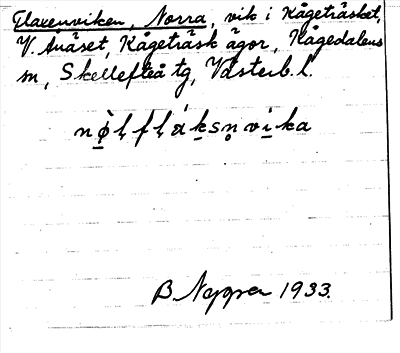 Flaxenviken, Norra, vik i Kågeträsket,
V. Avaset, Kågeträsk ägor, Kågedalens
sn, Skellefteå tg, Västerb. l.
nø̀lfláksn̥vika
B. Nyggren 1933.